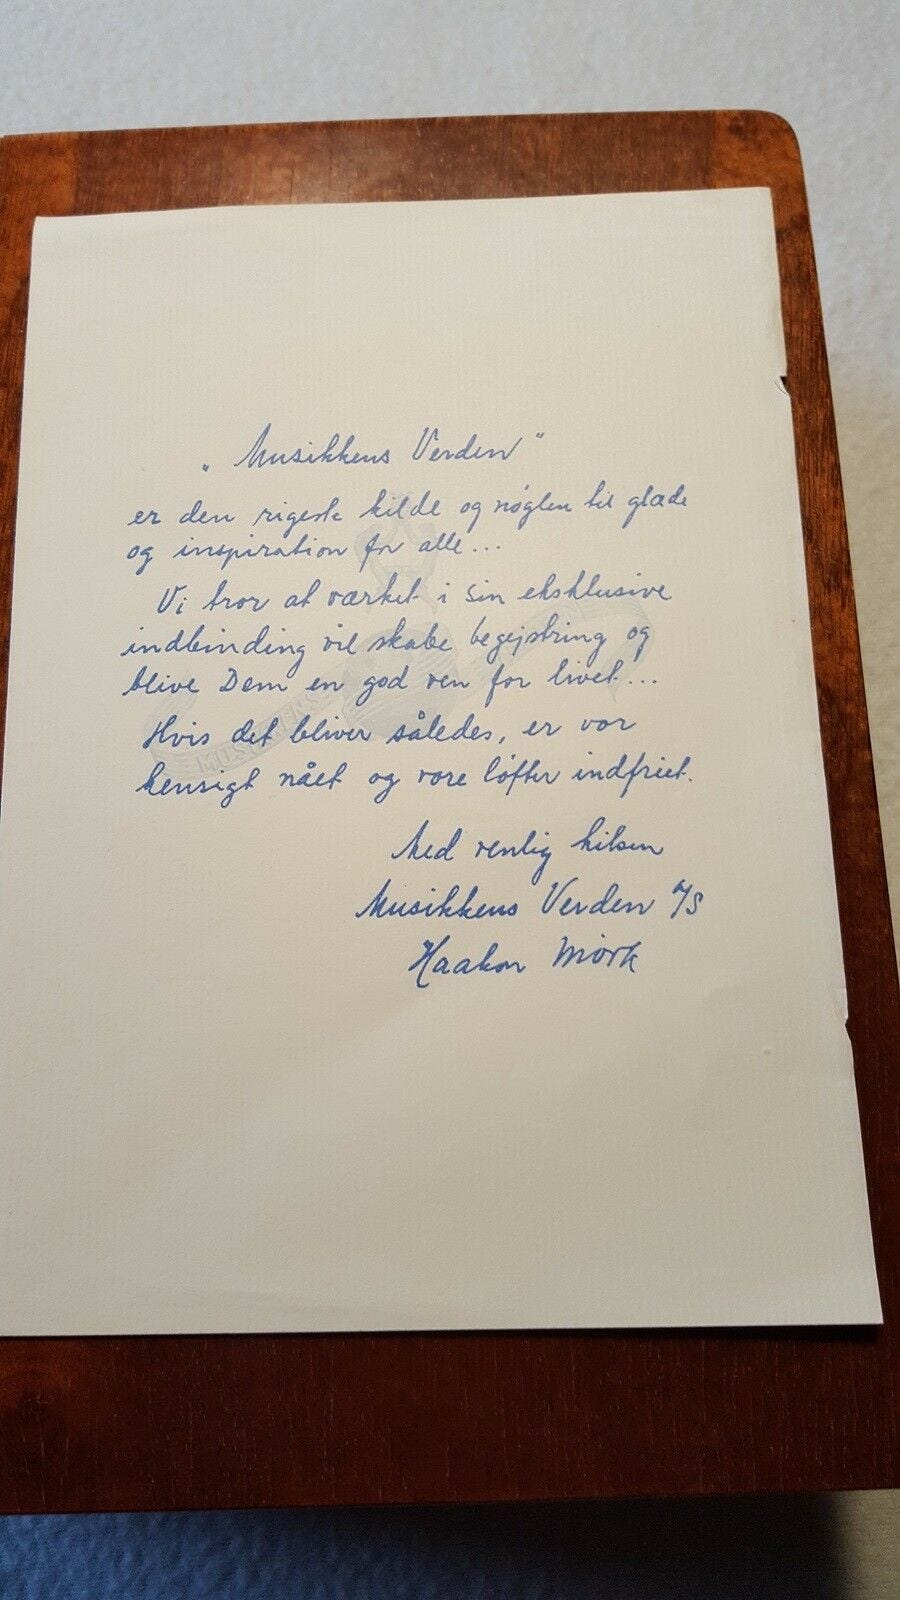 „Musikkens Verden"
er den rigeste kilde og nøglen til glæde
og inspiration for alle...
Vi tror at værket i sin eksklusive
indbinding vil skabe begejstring og
blive Dem en god ven for livet...
Hvis det bliver således, er vor
hensigt nået og vore løfter indfriet.
Med venlig hilsen
Musikkens Verden A/S
Haakon Mørk
MUSIKKENS